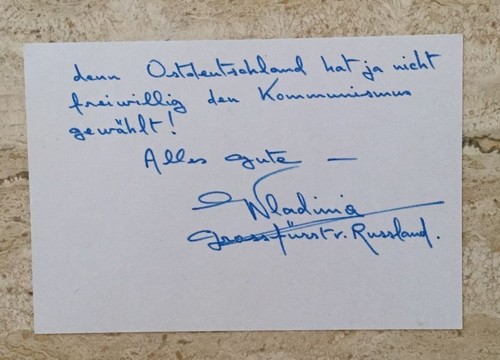 denn Ostdeutschland hat ja nicht
freiwillig den Kommunismus
gewählt!
Alles gute —
Wladimir
Grossfürst v. Russland.